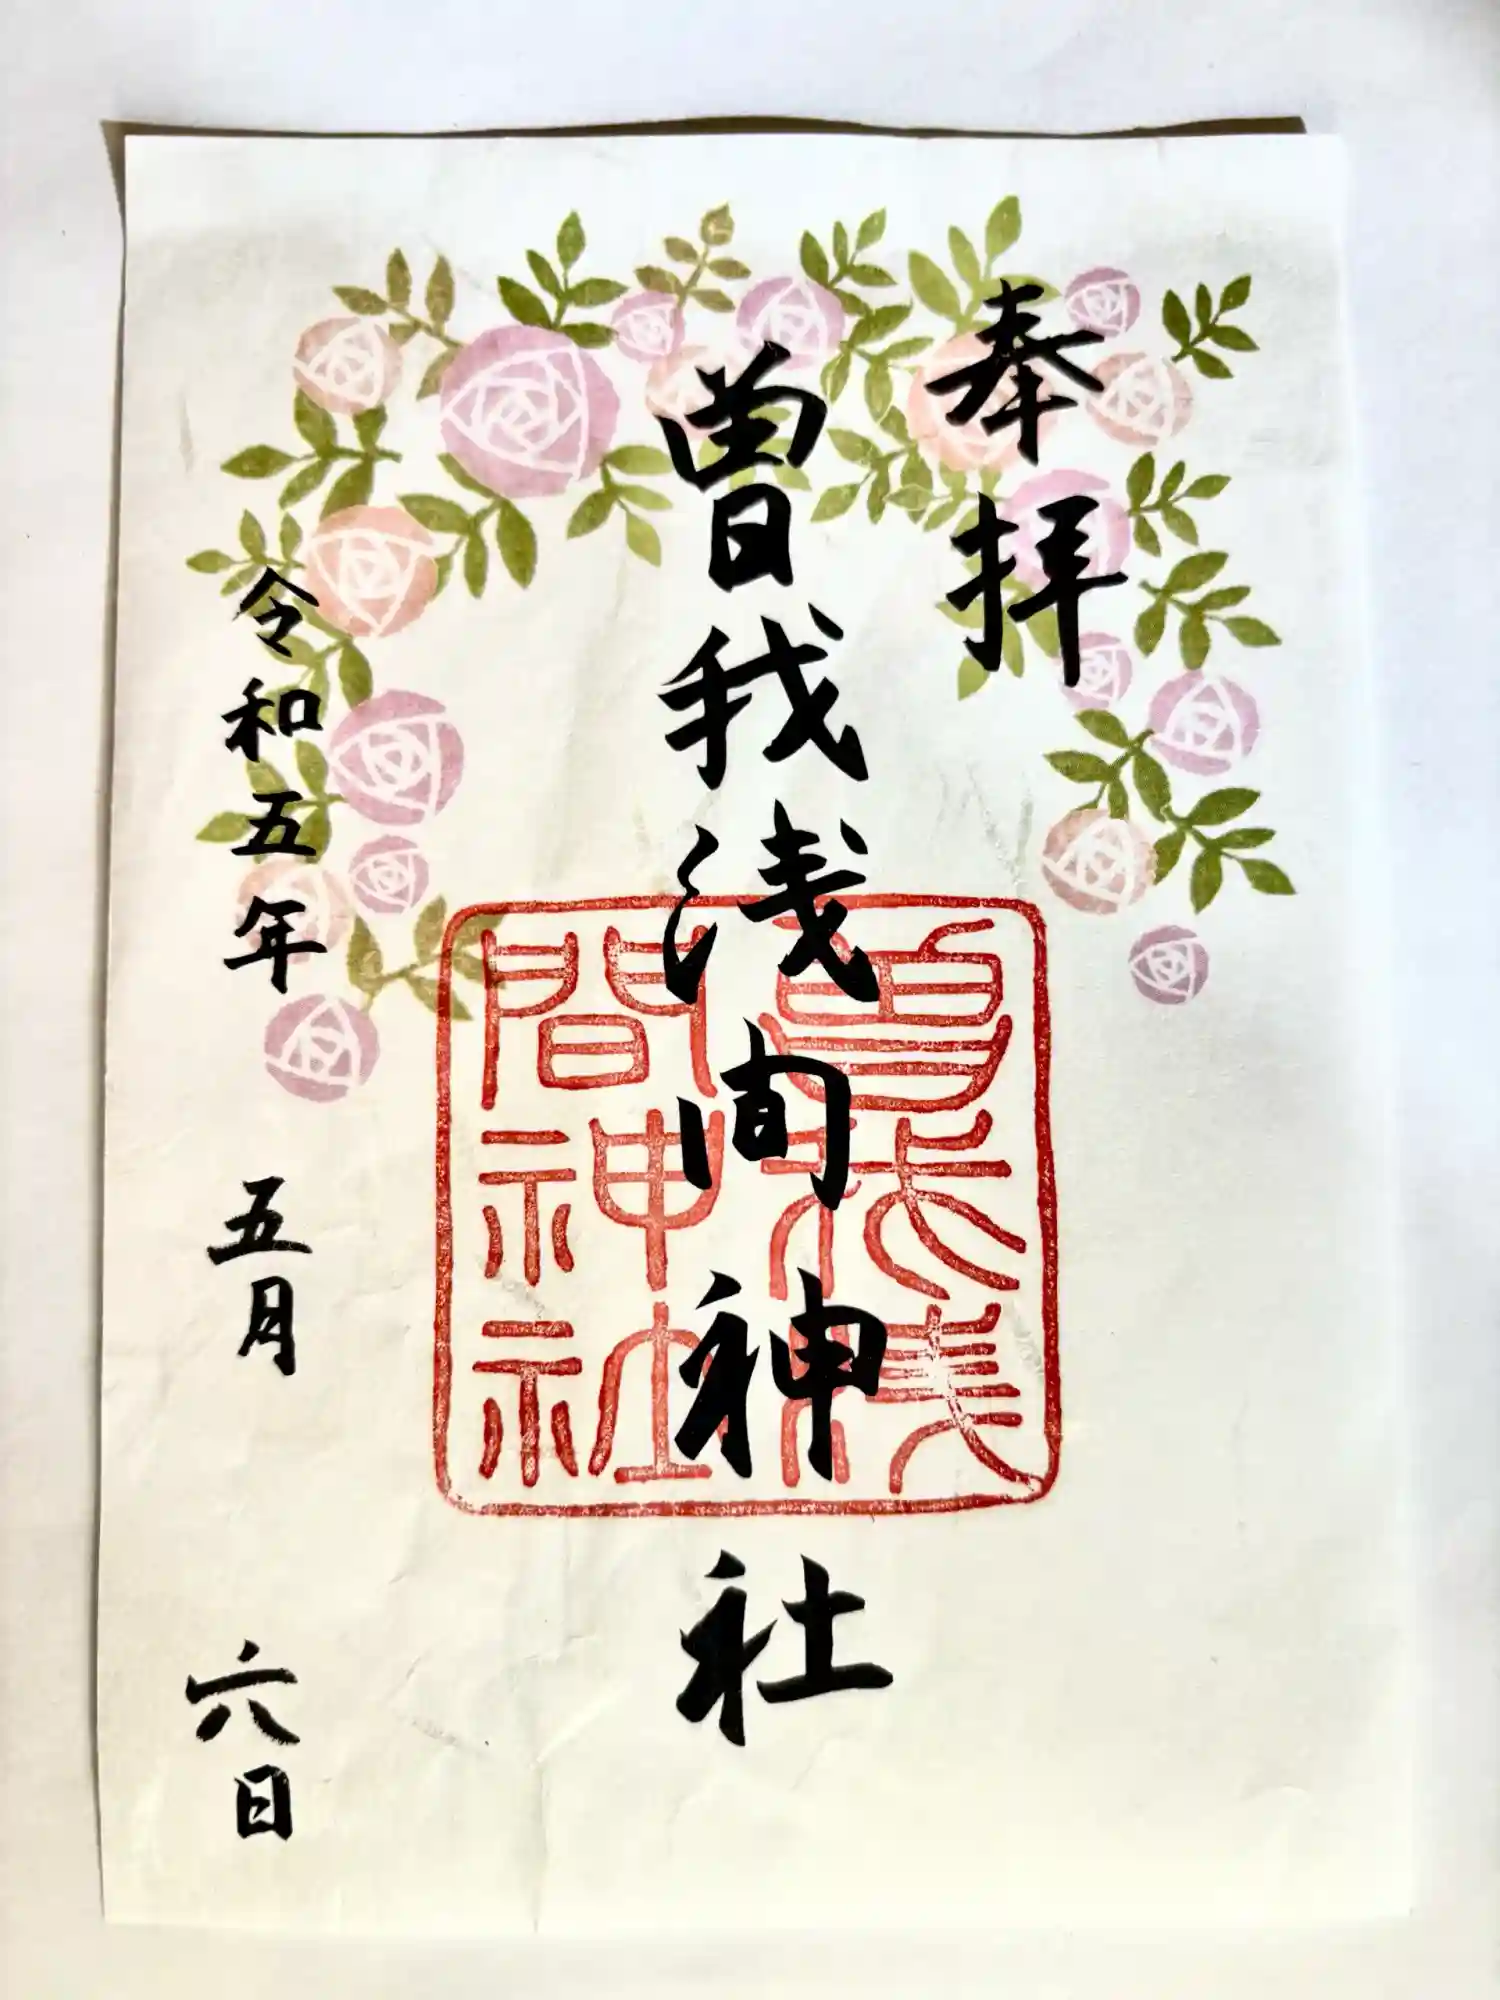 奉拝
曽我浅間神社
曽我浅間神社
令和五年 五月 六日